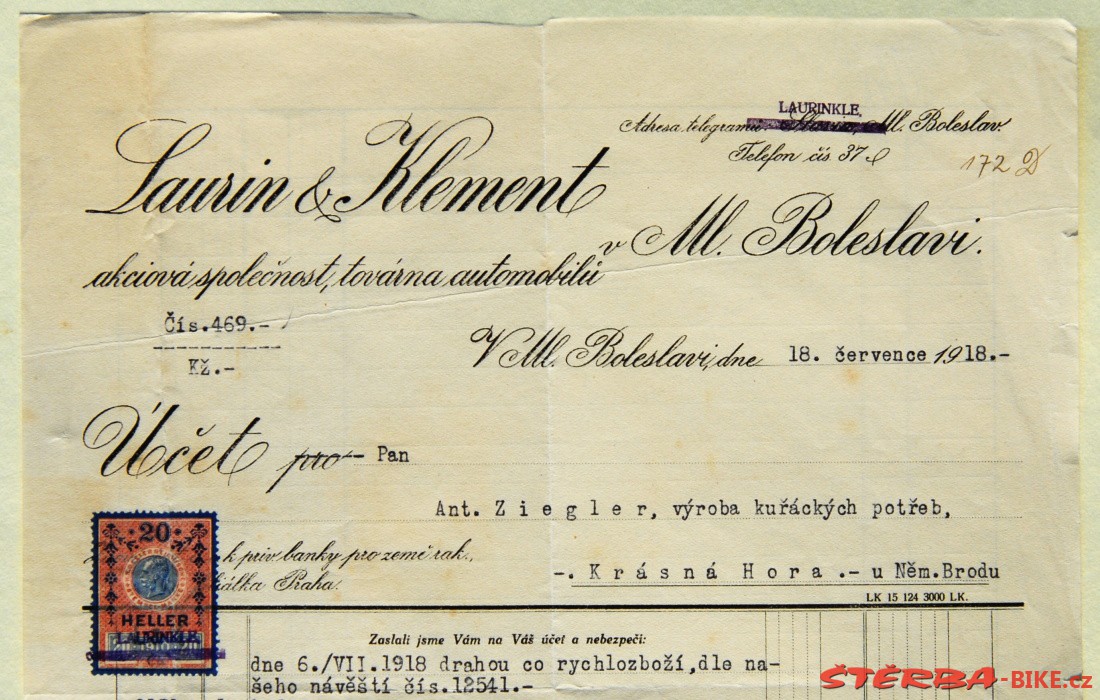 LAURINKLE,
Adresa telegramů: Ml. Boleslav.
Telefon čís 37
172 D
Laurin & Klement
akciová společnost, továrna automobilů
v Ml. Boleslavi.
Čís.469.-
Kž.-
V Ml. Boleslavi, dne 18. července 1918.-
Účet pro Pan
Ant. Ziegler, výroba kuřáckých potřeb,
k priv. banky pro země rak.,
Praha.
-. Krásná Hora .- u Něm.Brodu
LK 15 124 3000 LK.
20
HELLER
LAURINKLE
20 1910 20
Zaslali jsme Vám na Váš účet a nebezpečí:
dne 6./VII.1918 drahou co rychlozboží,dle na-
šeho návěští čís.12541.-
ŠTĚRBA-BIKE.cz